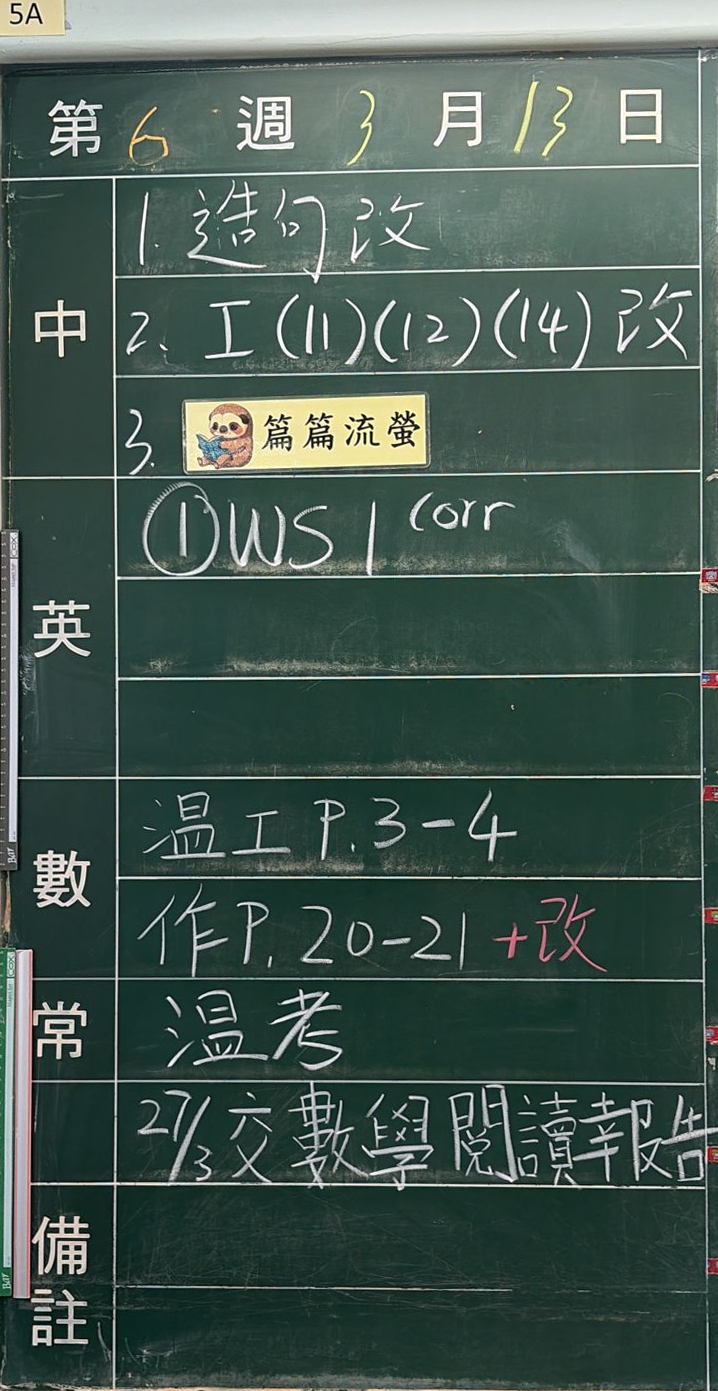 5A
第 6 週 3 月 13 日
中
1. 造句改
2. 工(11)(12)(14)改
3. 篇篇流螢
英
①WS1 corr
數
温工 P.3-4
作P. 20-21 +改
常
温考
27/3交數學閱讀報告
備註